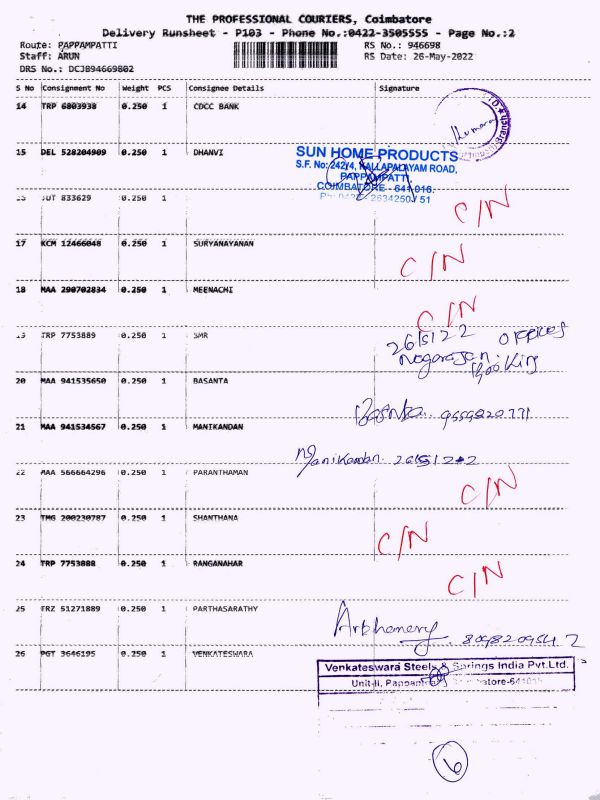 THE PROFESSIONAL COURIERS, Coimbatore
Delivery Runsheet - P103 - Phone No.:0422-3505555 - Page No.:2
Route: PAPPAMPATTI RS No.: 946698
Staff: ARUN RS Date: 26-May-2022
DRS No.: DCJB94669802
S No Consignment No Weight PCS Consignee Details Signature
14 TRP 6803938 0.250 1 CDCC BANK
Kumara
15 DEL 528204909 0.250 1 DHANVI
SUN HOME PRODUCTS
S.F. No: 242/4, KALLAPALAYAM ROAD,
PAPPAMPATTI,
COIMBATORE - 641 016.
2634250 / 51
JUT 833629 0.250 1
C/N
17 KCM 12466048 0.250 1 SURYANAYANAN
C/N
18 MAA 290702834 0.250 1 MEENACHI
C/N
19 TRP 7753889 0.250 1 SMR
26/5/22 OFFICES
Nagarajan Booking
20 MAA 941535650 0.250 1 BASANTA
9559820771
21 MAA 941534567 0.250 1 MANIKANDAN
Manikandan
22 MAA 566664296 0.250 1 PARANTHAMAN
C/N
23 TMG 200230787 0.250 1 SHANTHANA
C/N
24 TRP 7753888 0.250 1 RANGANAHAR
C/N
25 TRZ 51271889 0.250 1 PARTHASARATHY
8098209542
26 PGT 3646195 0.250 1 VENKATESHWARA
Venkateswara Steels & Springs India Pvt.Ltd.
Unit-II,
6